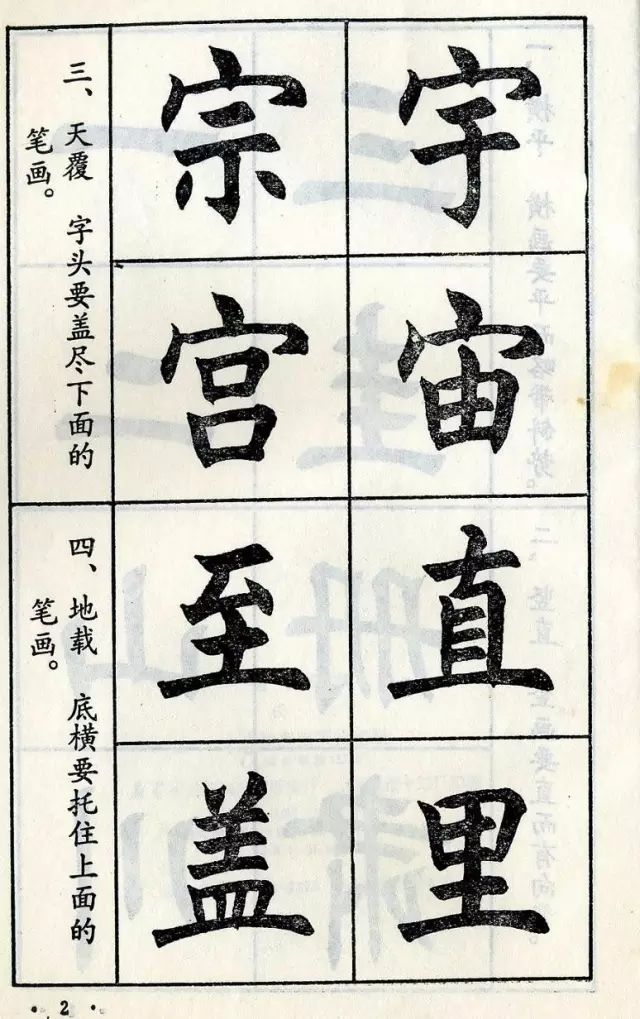 宇宙
宗宫
三、天覆 字头要盖尽下面的
笔画。
直里
至盖
四、地载 底横要托住上面的
笔画。
·2·